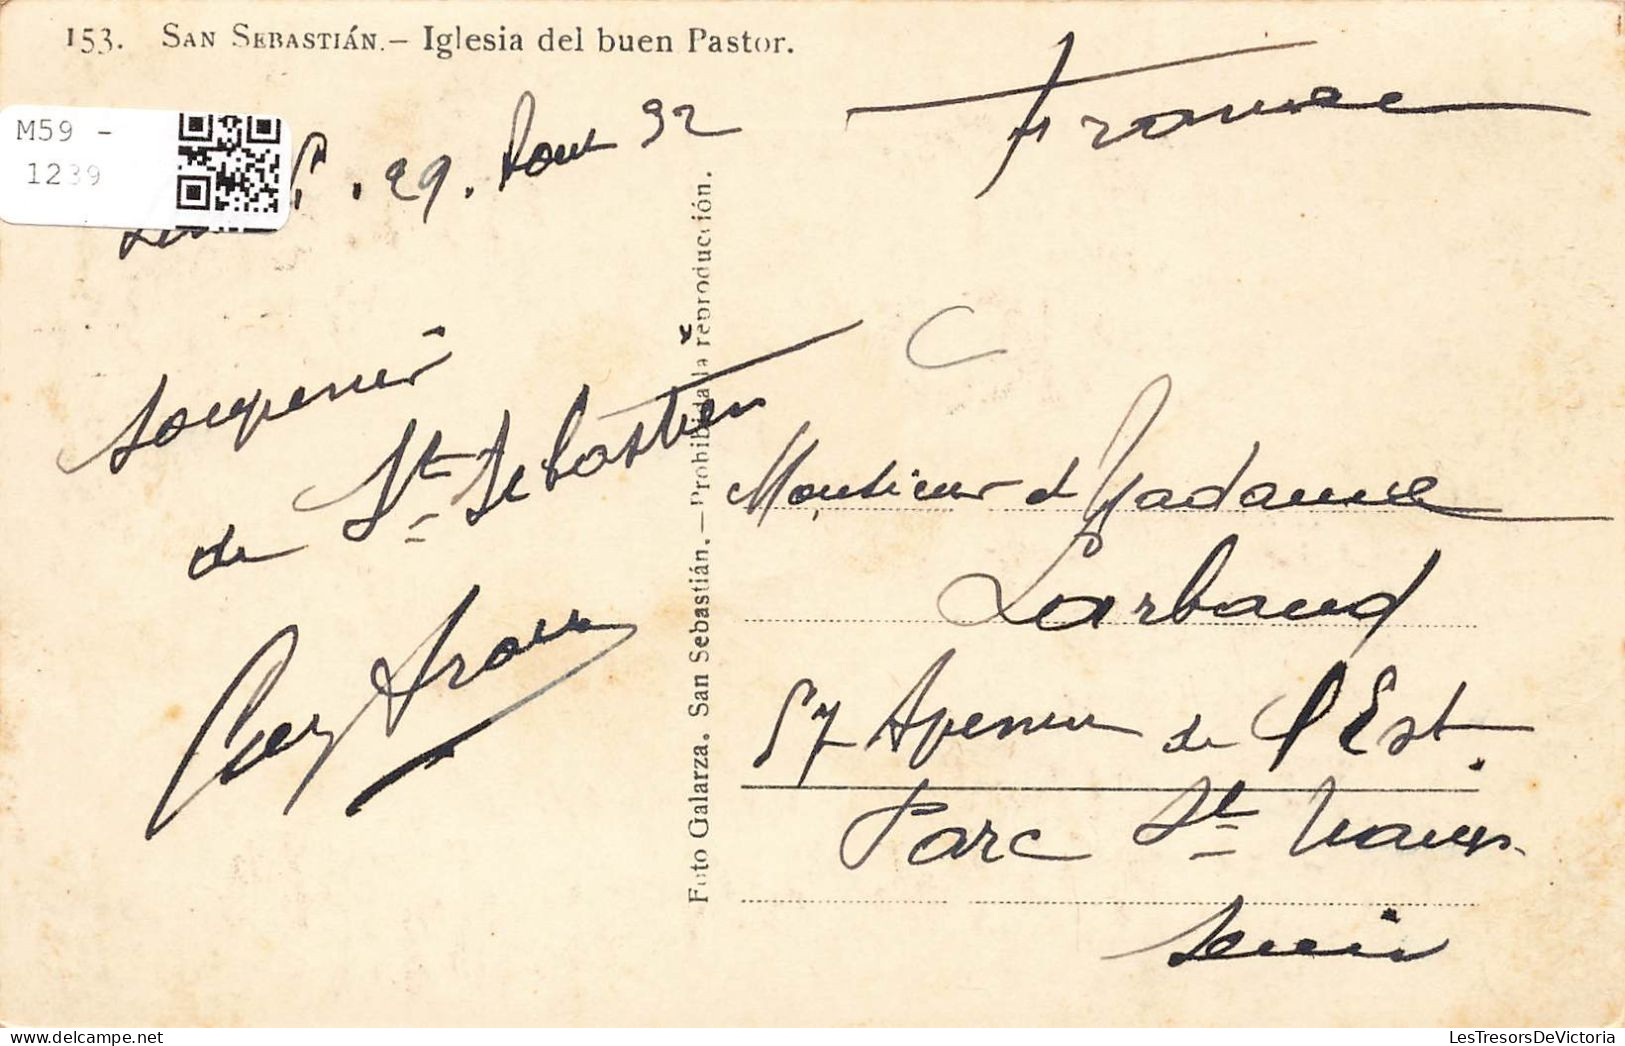 153. SAN SEBASTIÁN.— Iglesia del buen Pastor.
M59 -
1239
29. Aout 32
France
Souvenir
de St Sebastien
Foto Galarza. San Sebastián.—Prohibida la reproducción.
Monsieur et Madame
Larbaud
57 Avenue de l'Est.
Parc St Maur
Seine
LesTresorsDeVictoria